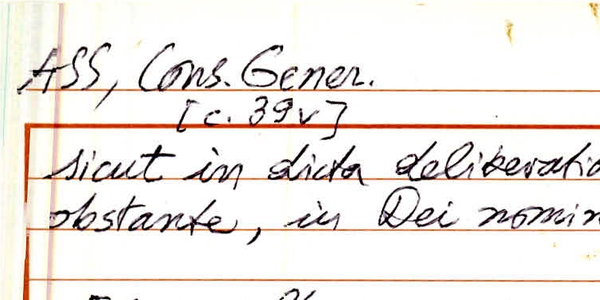 ASS, Cons. Gener.
[c. 39v]
sicut in dicta deliberatio
obstante, in Dei nomin